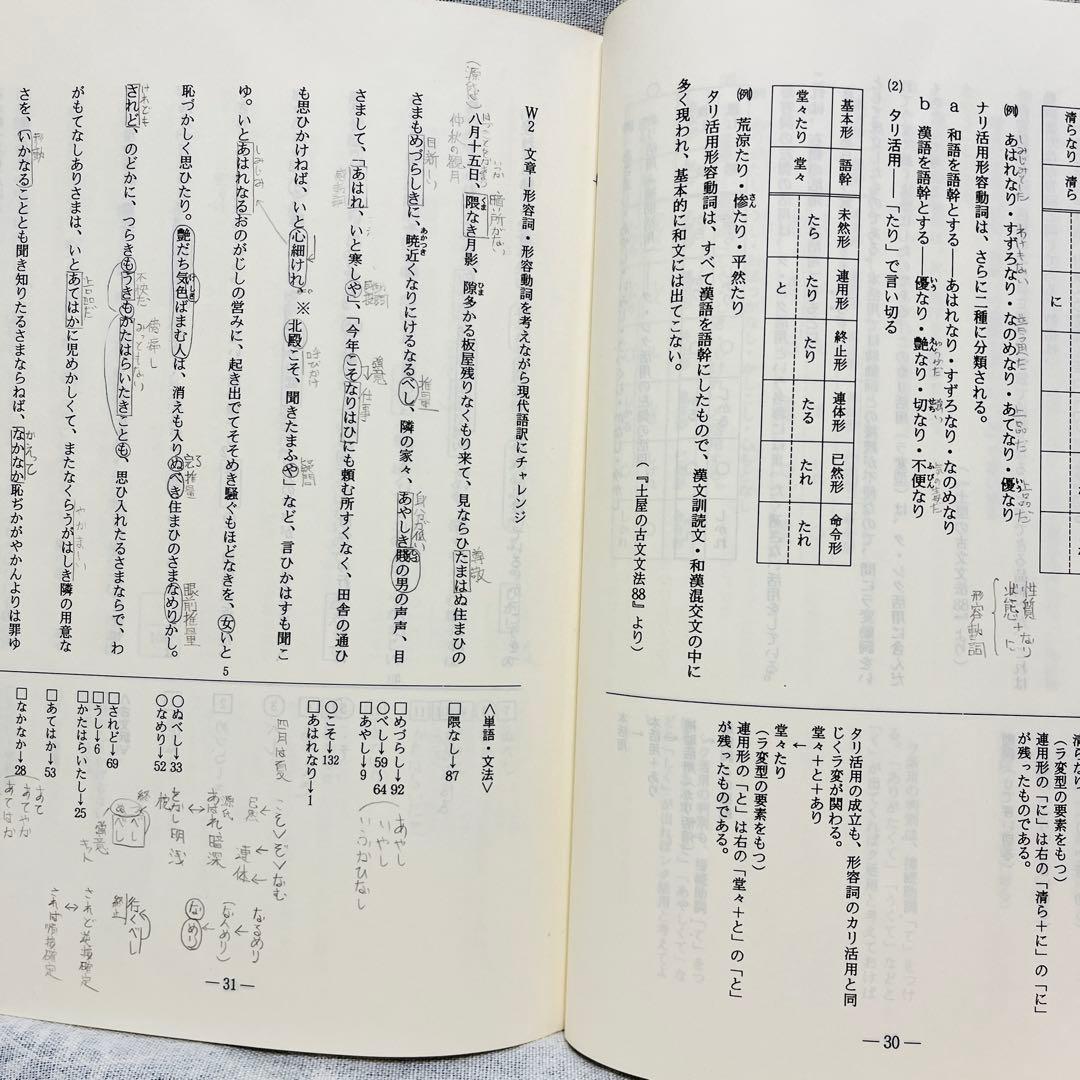 清らなり
清ら
に
(例) あはれなり・すずろなり・なのめなり・あてなり・優なり
ナリ活用形容動詞は、さらに二種に分類される。
a 和語を語幹とする――あはれなり・すずろなり・なのめなり
b 漢語を語幹とする――優なり・艶なり・切なり・不便なり
いう
えん
せち
ふびん
性質
状態
+
なり
に
形容動詞
(2) タリ活用――「たり」で言い切る
基本形 語幹 未然形 連用形 終止形 連体形 已然形 命令形
堂々たり 堂々 たら たり と たり たる たれ たれ
(例) 荒涼たり・惨たり・平然たり
さん
タリ活用形容動詞は、すべて漢語を語幹にしたもので、漢文訓読文・和漢混交文の中に
多く現われ、基本的に和文には出てこない。
(『土屋の古文文法88』より)
清らなり
(ラ変型の要素をもつ)
連用形の「に」は右の「清ら+に」の「に」
が残ったものである。
タリ活用の成立も、形容詞のカリ活用と同
じくラ変が関わる。
堂々+と+あり
↓
堂々たり
(ラ変型の要素をもつ)
連用形の「と」は右の「堂々+と」の「と」
が残ったものである。
―30―
W2 文章―形容詞・形容動詞を考えながら現代語訳にチャレンジ
八月十五日、隈なき月影、隙多かる板屋残りなくもり来て、見ならひたまはぬ住まひの
くま
ひま
仲秋の観月
暗い所がない
尊敬
さまもめづらしきに、暁近くなりにけるなるべし、隣の家々、あやしき賤の男の声声、目
目新しい
あかつき
推量
身分が低い
さまして、「あはれ、いと寒しや」、「今年こそなりはひにも頼む所すくなく、田舎の通ひ
強意
仕事
も思ひかけねば、いと心細けれ。※北殿こそ、聞きたまふや」など、言ひかはすも聞こ
呼びかけ
疑問
ゆ。いとあはれなるおのがじしの営みに、起き出でてそそめき騒ぐもほどなきを、女いと
しみじみ
恥づかしく思ひたり。艶だち気色ばまむ人は、消えも入りぬべき住まひのさまなめりかし。
けしき
推量
眼前推量
5
されど、のどかに、つらきもうきもかたはらいたきことも、思ひ入れたるさまならで、わ
けれども
不快だ
みっともない
がもてなしありさまは、いとあてはかに児めかしくて、またなくらうがはしき隣の用意な
上品だ
やかましい
さを、いかなることとも聞き知りたるさまならねば、なかなか恥ぢかかやかんよりは罪ゆ
かえって
〈単語・文法〉
□隈なし→87
□めづらし→92
○べし→59~64
□あやし→9
あやし
いやし
いうかひなし
○こそ→132
□あはれなり→1
四月は夏
こそ>ぞ>なむ
連体
源氏
あはれ 暗 深
をかし 明 浅
○ぬべし→33
○なめり→52
なるめり
(なんめり)
なめり
□されど→69
□うし→6
□かたはらいたし→25
終
ぬべし
強意
キット
行くべし
終止
□あてはか→53
□なかなか→28
あて
あてやか
あてはか
されど 逆接確定
されば 順接確定
―31―